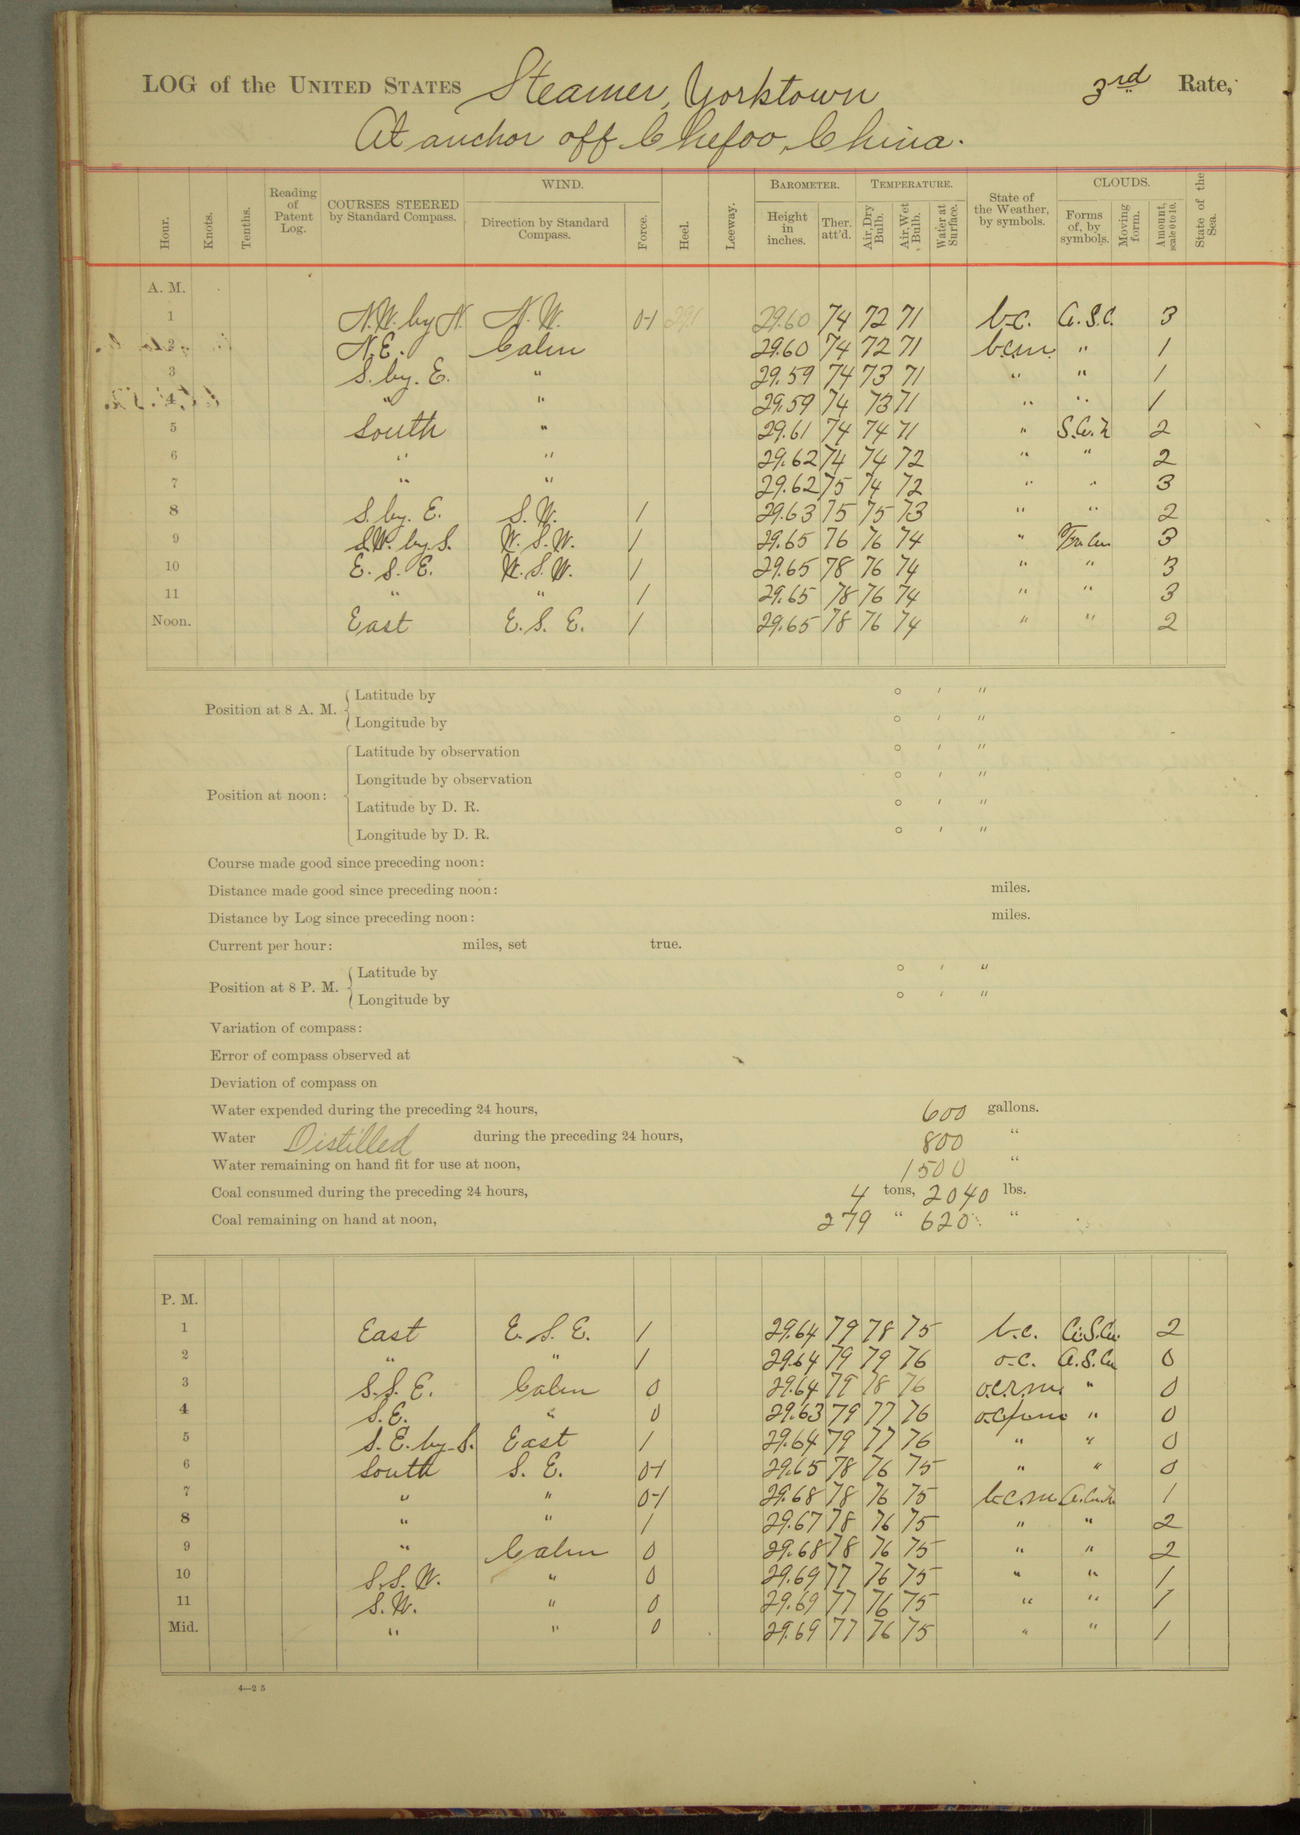 LOG of the UNITED STATES Steamer, Yorktown 3rd Rate,
At anchor off Chefoo, China.
Hour. Knots. Tenths. Reading of Patent Log. COURSES STEERED by Standard Compass. WIND. Direction by Standard Compass. Force. Heel. Leeway. BAROMETER. Height in inches. Ther. att'd. TEMPERATURE. Air, Dry Bulb. Air, Wet Bulb. Water at Surface. State of the Weather, by symbols. CLOUDS. Forms of, by symbols. Moving form. Amount, scale 0 to 10. State of the Sea.
A. M.
1 N.W. by N. N.W. 0-1 29.60 74 72 71 b.c. 3
2 N.E. Calm 29.60 74 72 71 b.c.m. " 1
3 S. by. E. " 29.59 74 73 71 " " 1
4 " " 29.59 74 73 71 " " 1
5 South " 29.61 74 74 71 " 2
6 " " 29.62 74 74 72 " " 2
7 " " 29.62 75 74 72 " " 3
8 S. by. E. S.W. 1 29.63 75 75 73 " " 2
9 S.W. by. S. W.S.W. 1 29.65 76 76 74 " 3
10 E.S.E. W.S.W. 1 29.65 78 76 74 " " 3
11 " " 1 29.65 78 76 74 " " 3
Noon. East E.S.E. 1 29.65 78 76 74 " " 2
Position at 8 A. M. Latitude by ° ' "
Longitude by ° ' "
Position at noon: Latitude by observation ° ' "
Longitude by observation ° ' "
Latitude by D. R. ° ' "
Longitude by D. R. ° ' "
Course made good since preceding noon:
Distance made good since preceding noon: miles.
Distance by Log since preceding noon: miles.
Current per hour: miles, set true.
Position at 8 P. M. Latitude by ° ' "
Longitude by ° ' "
Variation of compass:
Error of compass observed at
Deviation of compass on
Water expended during the preceding 24 hours, 600 gallons.
Water Distilled during the preceding 24 hours, 800 "
Water remaining on hand fit for use at noon, 1500 "
Coal consumed during the preceding 24 hours, 4 tons, 2040 lbs.
Coal remaining on hand at noon, 279 " 620 "
P. M.
1 East E.S.E. 1 29.64 79 78 75 b.c. 2
2 " " 1 29.64 79 79 76 o.c. 0
3 S.S.E. Calm 0 29.64 79 78 76 o.c.r.m. " 0
4 S.E. " 0 29.63 79 77 76 " 0
5 S.E. by S. East 1 29.64 79 77 76 " " 0
6 South S.E. 0-1 29.65 78 76 75 " " 0
7 " " 0-1 29.68 78 76 75 b.c.m. 1
8 " " 1 29.67 78 76 75 " " 2
9 " Calm 0 29.68 78 76 75 " " 2
10 S.S.W. " 0 29.69 77 76 75 " " 1
11 S.W. " 0 29.69 77 76 75 " " 1
Mid. " " 0 29.69 77 76 75 " " 1
4—25